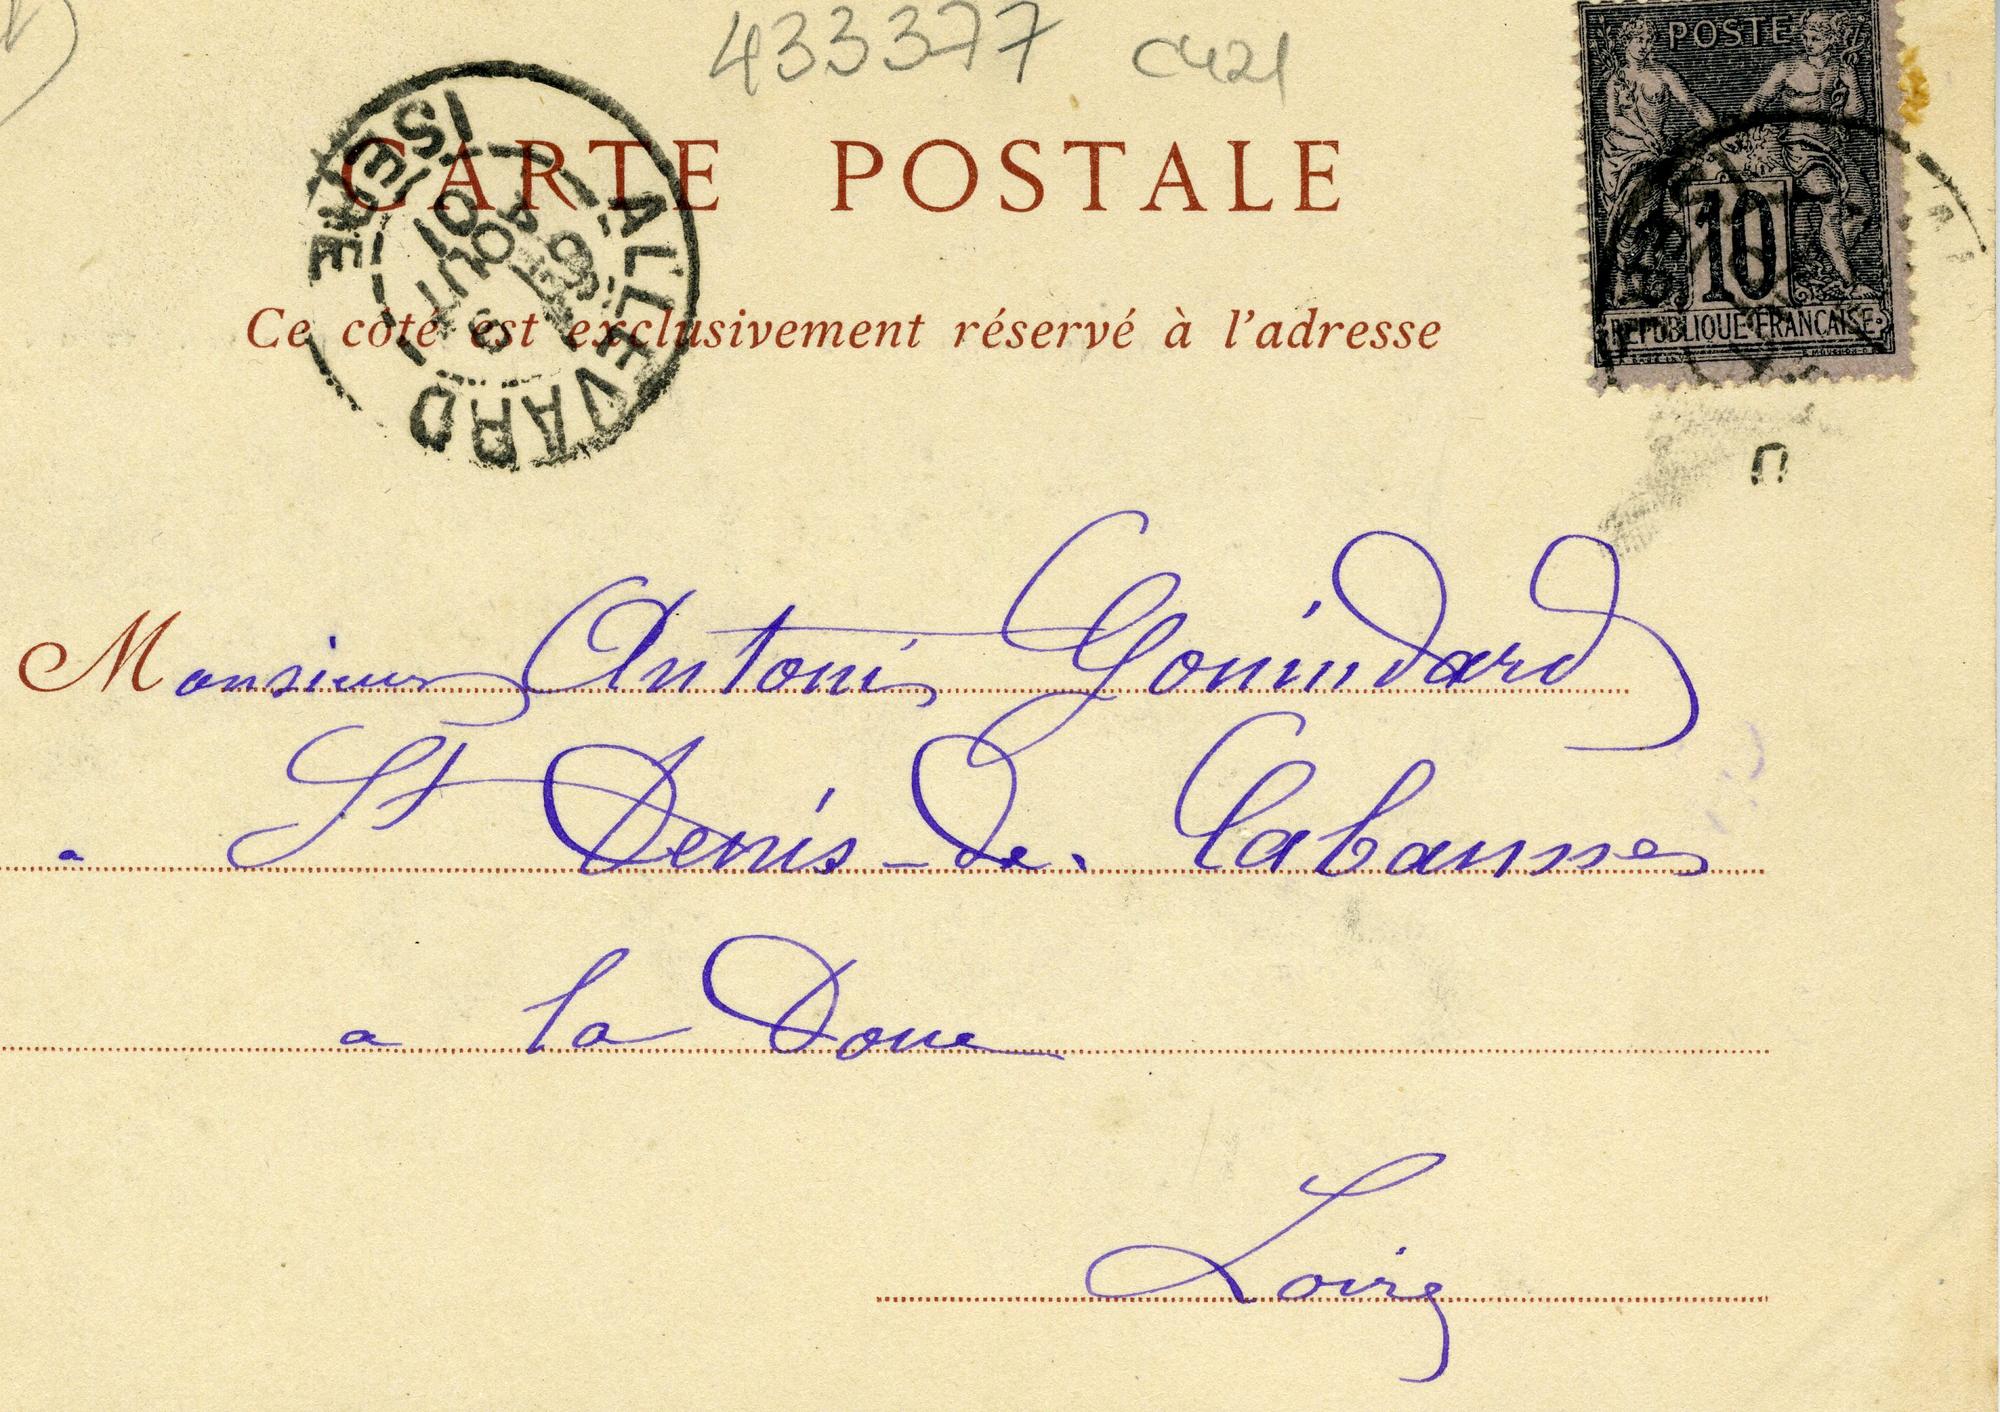 433377 cu21
CARTE POSTALE
POSTE
10
REPUBLIQUE FRANCAISE
ALLEVARD
ISERE
6
AOUT
01
Ce côté est exclusivement réservé à l'adresse
Monsieur Antoni Gonindard
a St Denis-de-Cabannes
a la Doue
Loire